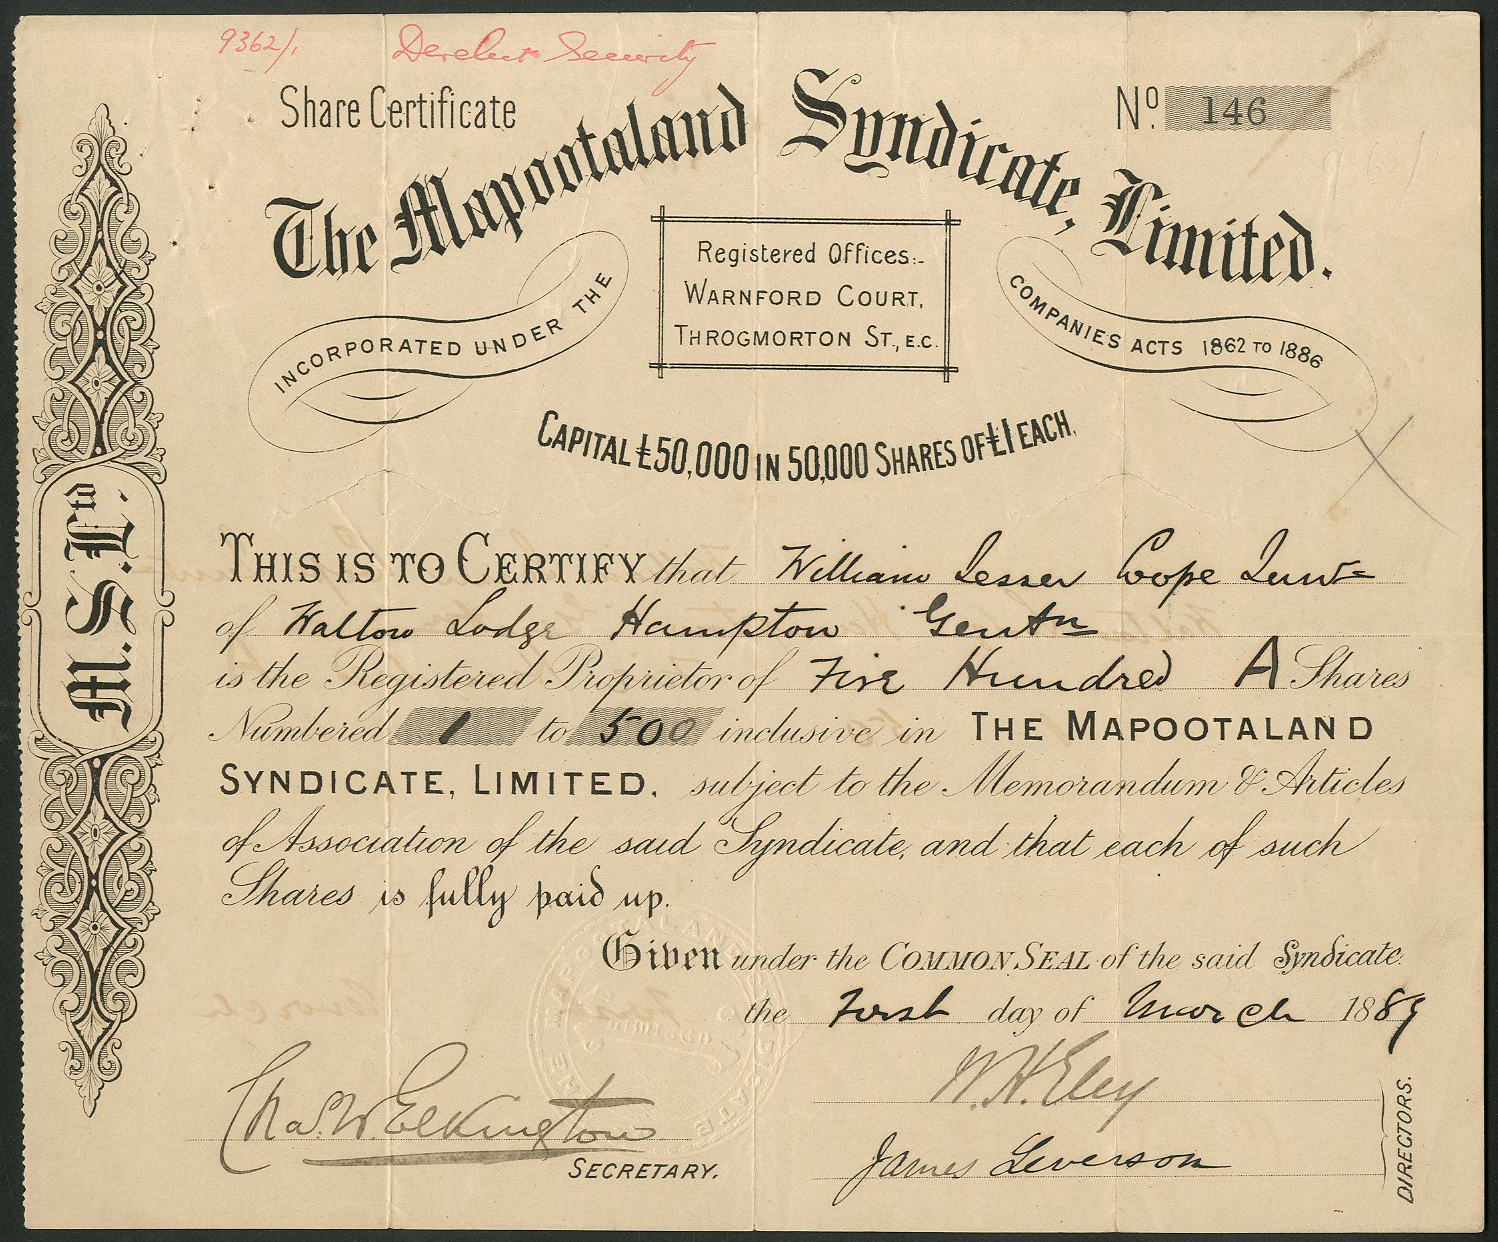 9362/1. Derelict Security
Share Certificate
No. 146
The Mapootaland Syndicate, Limited.
INCORPORATED UNDER THE
Registered Offices:-
WARNFORD COURT,
THROGMORTON ST., E.C.
COMPANIES ACTS 1862 TO 1886
CAPITAL £50,000 IN 50,000 SHARES OF £1 EACH.
M. S. Ld.
THIS IS TO CERTIFY that William Lesser Cope
of Walton Lodge Hampton Gentn
is the Registered Proprietor of Five Hundred A Shares
Numbered 1 to 500 inclusive in THE MAPOOTALAND
SYNDICATE, LIMITED, subject to the Memorandum & Articles
of Association of the said Syndicate, and that each of such
Shares is fully paid up.
Given under the COMMON SEAL of the said Syndicate
the First day of March 1889
W. H. Eley
Chas. W. Elkington
SECRETARY.
James Leverson
DIRECTORS.